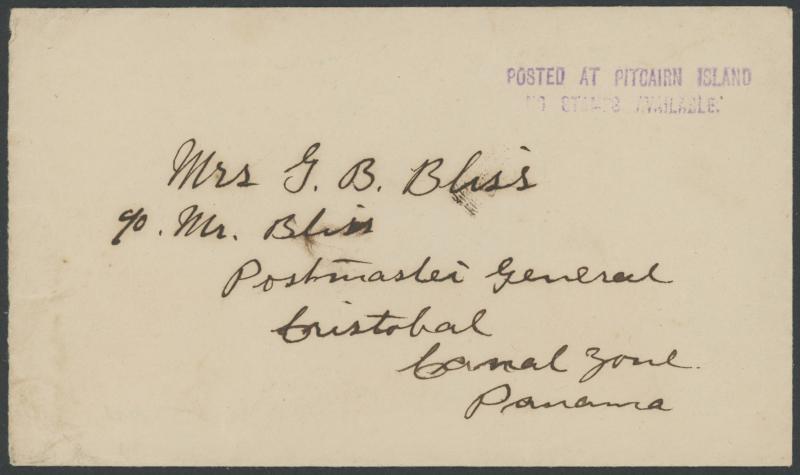 POSTED AT PITCAIRN ISLAND
NO STAMPS AVAILABLE.
Mrs G. B. Bliss
c/o. Mr. Bliss
Postmaster General
Cristobal
Canal Zone.
Panama